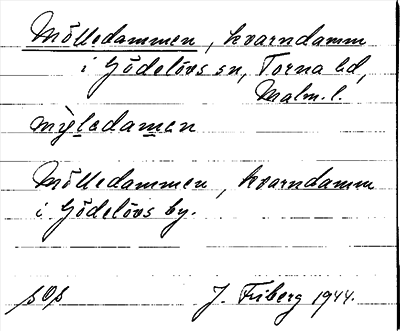 Mölledammen, kvarndamm
i Gödelövs sn, Torna hd,
Malm. l.
mỳledamen
Mölledammen, kvarndamm
i Gödelövs by.
J. Friberg 1944.